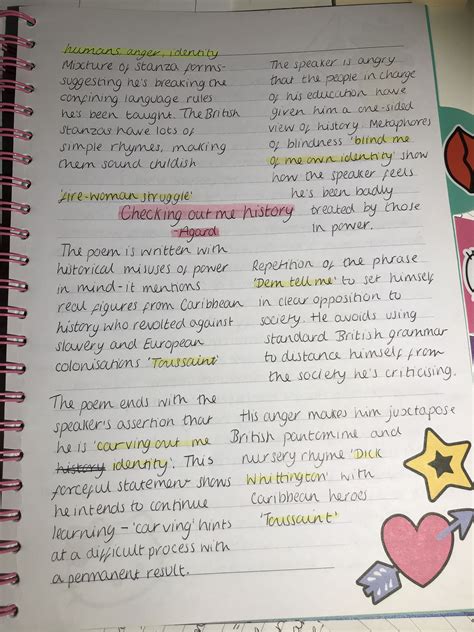 humans, anger, identity
Mixture of Stanza forms-
suggesting he's breaking the
confining language rules
he's been taught. The British
stanzas have lots of
simple rhymes, making
them sound childish
'fire-woman struggle'
The speaker is angry
that the people in charge
of his education have
given him a one-sided
view of history. Metaphores
of blindness 'blind me
of me own identity' show
how the speaker feels
he's been badly
treated by those
in power.
Checking out me history
-Agard
The poem is written with
historical misuses of power
in mind-it mentions
real figures from Caribbean
history who revolted against
slavery and European
colonisations 'Toussaint'
Repetition of the phrase
'Dem tell me' to set himself
in clear opposition to
society. He avoids using
standard British grammar
to distance himself from
the society he's criticising.
The poem ends with the
speaker's assertion that
he is 'carving out me
history identity'. This
forceful statement shows
he intends to continue
learning - 'carving' hints
at a difficult process with
a permanent result.
His anger makes him juxtapose
British pantomine and
nursery rhyme 'Dick
Whittington' with
Caribbean heroes
'Toussaint'